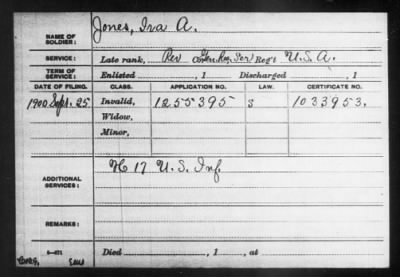 Jones, Ira A.
NAME OF SOLDIER:
SERVICE: Late rank, Rev Gen. Ser Reg't U.S.A.
TERM OF SERVICE: Enlisted , 1 Discharged , 1
DATE OF FILING. CLASS. APPLICATION NO. LAW. CERTIFICATE NO.
1900 Sept. 25 Invalid, 1255395 S 1033953.
Widow,
Minor,
ADDITIONAL SERVICES: H 17 U.S. Inf.
REMARKS:
Died , 1 , at